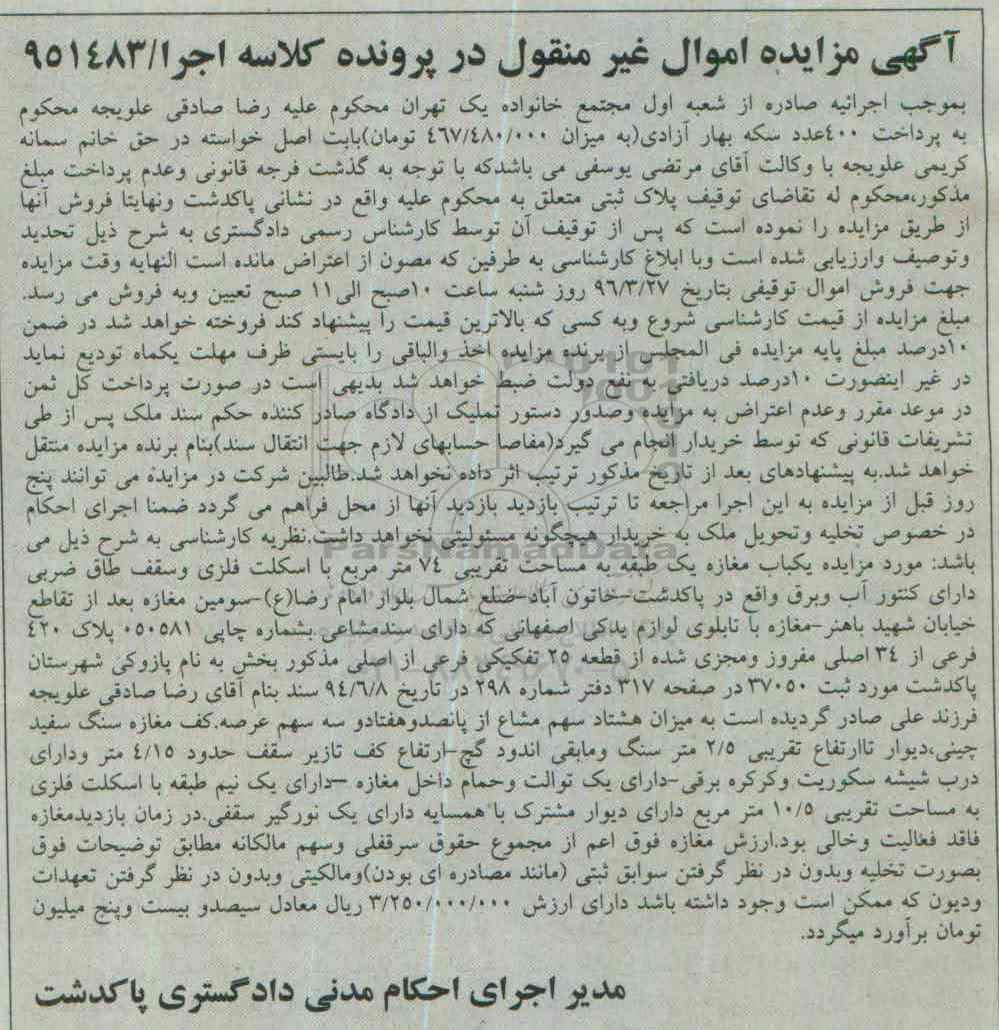 آگهی مزایده اموال غیر منقول در پرونده کلاسه اجرا/۹۵۱۴۸۳
بموجب اجرائیه صادره از شعبه اول مجتمع خانواده یک تهران محکوم علیه رضا صادقی علویجه محکوم
به پرداخت ۴۰۰عدد سکه بهار آزادی(به میزان ۴۶۷/۴۸۰/۰۰۰ تومان)بابت اصل خواسته در حق خانم سمانه
کریمی علویجه با وکالت آقای مرتضی یوسفی می باشدکه با توجه به گذشت فرجه قانونی وعدم پرداخت مبلغ
مذکور،محکوم له تقاضای توقیف پلاک ثبتی متعلق به محکوم علیه واقع در نشانی پاکدشت ونهایتا فروش آنها
از طریق مزایده را نموده است که پس از توقیف آن توسط کارشناس رسمی دادگستری به شرح ذیل تحدید
وتوصیف وارزیابی شده است وبا ابلاغ کارشناسی به طرفین که مصون از اعتراض مانده است النهایه وقت مزایده
جهت فروش اموال توقیفی بتاریخ ۹۶/۳/۲۷ روز شنبه ساعت ۱۰صبح الی۱۱ صبح تعیین وبه فروش می رسد.
مبلغ مزایده از قیمت کارشناسی شروع وبه کسی که بالاترین قیمت را پیشنهاد کند فروخته خواهد شد در ضمن
۱۰درصد مبلغ پایه مزایده فی المجلس از برنده مزایده اخذ والباقی را بایستی ظرف مهلت یکماه تودیع نماید
در غیر اینصورت ۱۰درصد دریافتی به نفع دولت ضبط خواهد شد بدیهی است در صورت پرداخت کل ثمن
در موعد مقرر وعدم اعتراض به مزایده وصدور دستور تملیک از دادگاه صادر کننده حکم سند ملک پس از طی
تشریفات قانونی که توسط خریدار انجام می گیرد(مفاصا حسابهای لازم جهت انتقال سند)بنام برنده مزایده منتقل
خواهد شد.به پیشنهادهای بعد از تاریخ مذکور ترتیب اثر داده نخواهد شد.طالبین شرکت در مزایده می توانند پنج
روز قبل از مزایده به این اجرا مراجعه تا ترتیب بازدید بازدید آنها از محل فراهم می گردد ضمنا اجرای احکام
در خصوص تخلیه وتحویل ملک به خریدار هیچگونه مسئولیتی نخواهد داشت.نظریه کارشناسی به شرح ذیل می
ParsNamadData
باشد: مورد مزایده یکباب مغازه یک طبقه به مساحت تقریبی ۷۴ متر مربع با اسکلت فلزی وسقف طاق ضربی
دارای کنتور آب وبرق واقع در پاکدشت-خاتون آباد-ضلع شمال بلوار امام رضا(ع)-سومین مغازه بعد از تقاطع
خیابان شهید باهنر-مغازه با تابلوی لوازم یدکی اصفهانی که دارای سندمشاعی بشماره چاپی ۰۵۰۵۸۱ پلاک ۴۲۰
فرعی از ۳۴ اصلی مفروز ومجزی شده از قطعه ۲۵ تفکیکی فرعی از اصلی مذکور بخش به نام پازوکی شهرستان
پاکدشت مورد ثبت ۳۷۰۵۰ در صفحه ۳۱۷ دفتر شماره ۲۹۸ در تاریخ ۹۴/۶/۸ سند بنام آقای رضا صادقی علویجه
فرزند علی صادر گردیده است به میزان هشتاد سهم مشاع از پانصدوهفتادو سه سهم عرصه.کف مغازه سنگ سفید
چینی،دیوار تاارتفاع تقریبی ۲/۵ متر سنگ ومابقی اندود گچ-ارتفاع کف تازیر سقف حدود ۴/۱۵ متر ودارای
درب شیشه سکوریت وکرکره برقی-دارای یک توالت وحمام داخل مغازه –دارای یک نیم طبقه با اسکلت فلزی
به مساحت تقریبی ۱۰/۵ متر مربع دارای دیوار مشترک با همسایه دارای یک نورگیر سقفی.در زمان بازدیدمغازه
فاقد فعالیت وخالی بود.ارزش مغازه فوق اعم از مجموع حقوق سرقفلی وسهم مالکانه مطابق توضیحات فوق
بصورت تخلیه وبدون در نظر گرفتن سوابق ثبتی (مانند مصادره ای بودن)ومالکیتی وبدون در نظر گرفتن تعهدات
ودیون که ممکن است وجود داشته باشد دارای ارزش ۳/۲۵۰/۰۰۰/۰۰۰ ریال معادل سیصدو بیست وپنج میلیون
تومان برآورد میگردد.
مدیر اجرای احکام مدنی دادگستری پاکدشت